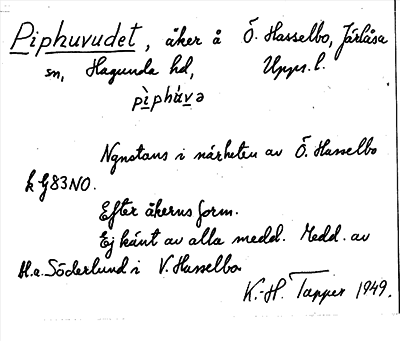 Piphuvudet, åker å Ö. Hasselbo, Järlåsa
sn, Hagunda hd, Upps. l.
pìphúvə
Ngnstans i närheten av Ö. Hasselbo
k G83NO.
Efter åkerns form.
Ej känt av alla medd. Medd. av
H.a. Söderlund i V. Hasselbo
K.-H. Tapper 1949.